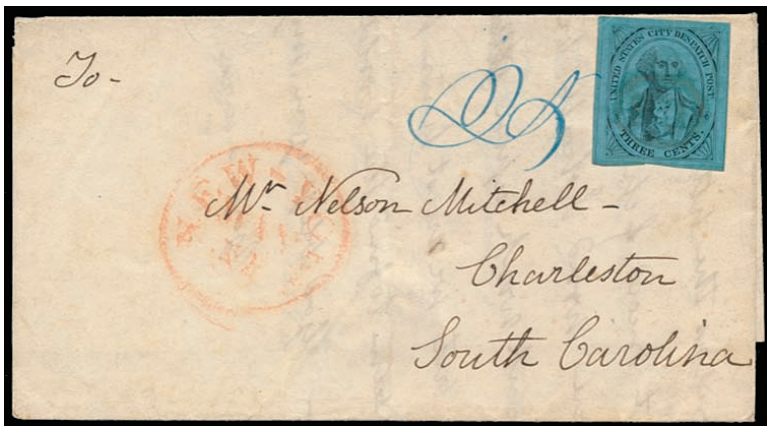 To-
25
UNITED STATES CITY DESPATCH POST
THREE CENTS.
NEW-YORK
Mr Nelson Mitchell-
Charleston
South Carolina